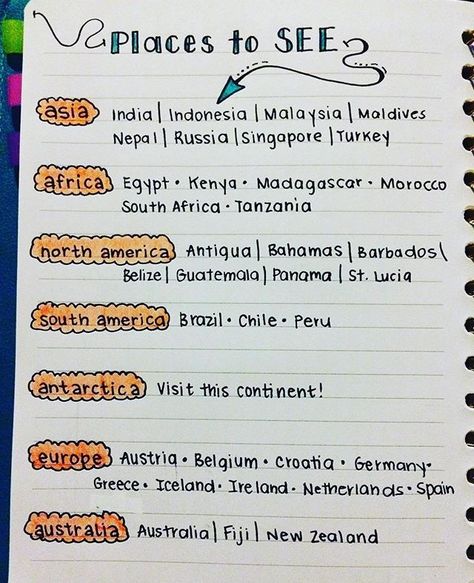 Places to SEE
asia India | Indonesia | Malaysia | Maldives
Nepal | Russia | Singapore | Turkey
africa Egypt • Kenya • Madagascar • Morocco
South Africa • Tanzania
north america Antigua | Bahamas | Barbados \
Belize | Guatemala | Panama | St. Lucia
south america Brazil • Chile • Peru
antarctica Visit this continent!
europe Austria • Belgium • Croatia • Germany •
Greece • Iceland • Ireland • Netherlands • Spain
australia Australia | Fiji | New Zealand